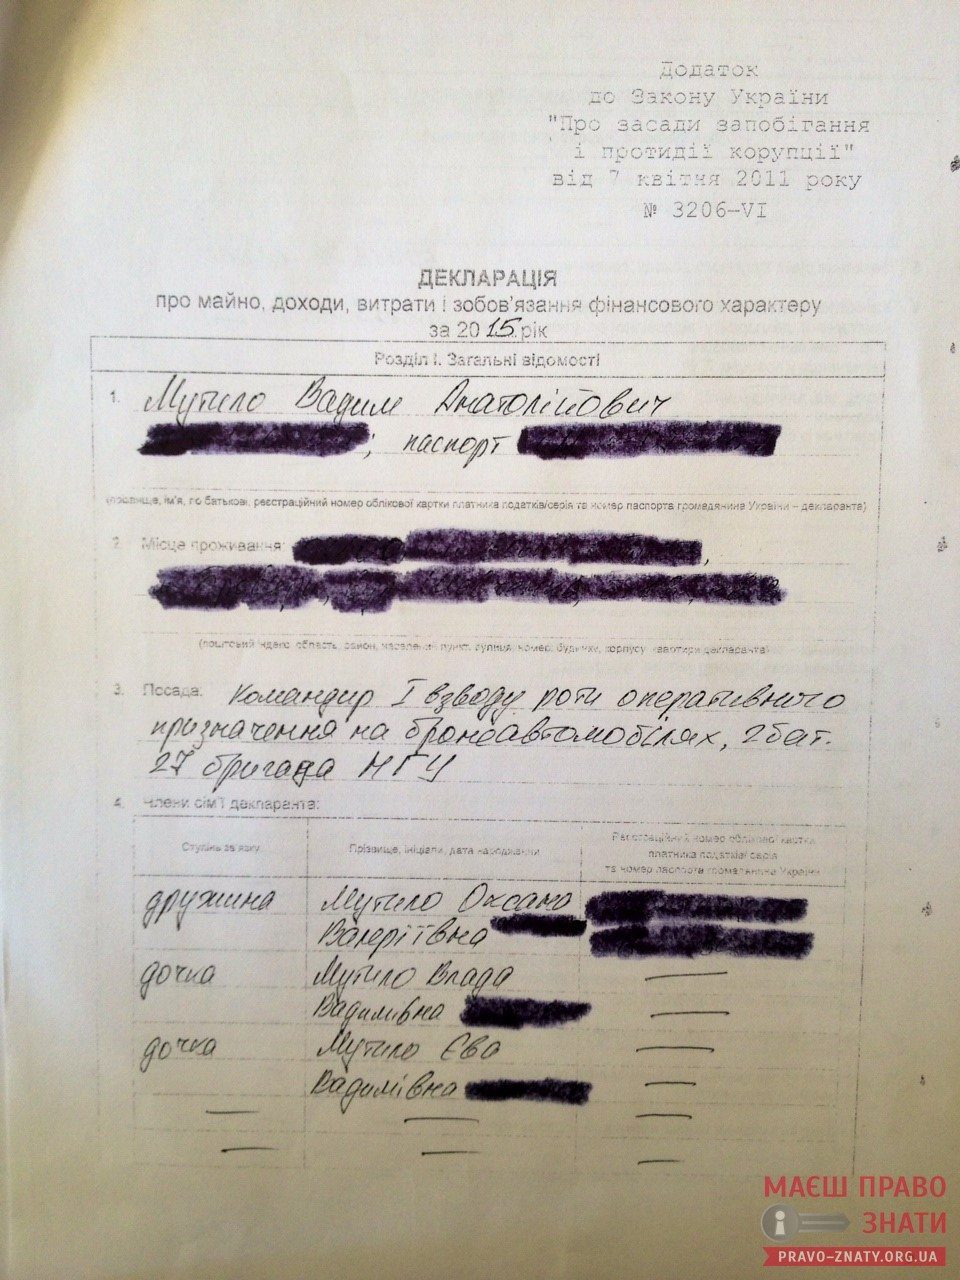 Додаток
до Закону України
"Про засади запобігання
і протидії корупції"
від 7 квітня 2011 року
№ 3206-VI
ДЕКЛАРАЦІЯ
про майно, доходи, витрати і зобов'язання фінансового характеру
за 2015 рік
Розділ I. Загальні відомості
1. Мутило Вадим Анатолійович
; паспорт
(прізвище, ім'я, по батькові, реєстраційний номер облікової картки платника податків/серія та номер паспорта громадянина України – декларанта)
2. Місце проживання:
(поштовий індекс, область, район, населений пункт, вулиця, номер будинку, корпусу, квартири декларанта)
3. Посада: Командир I взводу роти оперативного
призначення на бронеавтомобілях, 2 бат.
27 бригада НГУ
4. Члени сім'ї декларанта:
Ступінь зв'язку
Прізвище, ініціали, дата народження
Реєстраційний номер облікової картки
платника податків/серія
та номер паспорта громадянина України
дружина Мутило Оксана
Валеріївна
дочка Мутило Влада
Вадимівна
дочка Мутило Єва
Вадимівна
МАЄШ ПРАВО
ЗНАТИ
PRAVO-ZNATY.ORG.UA